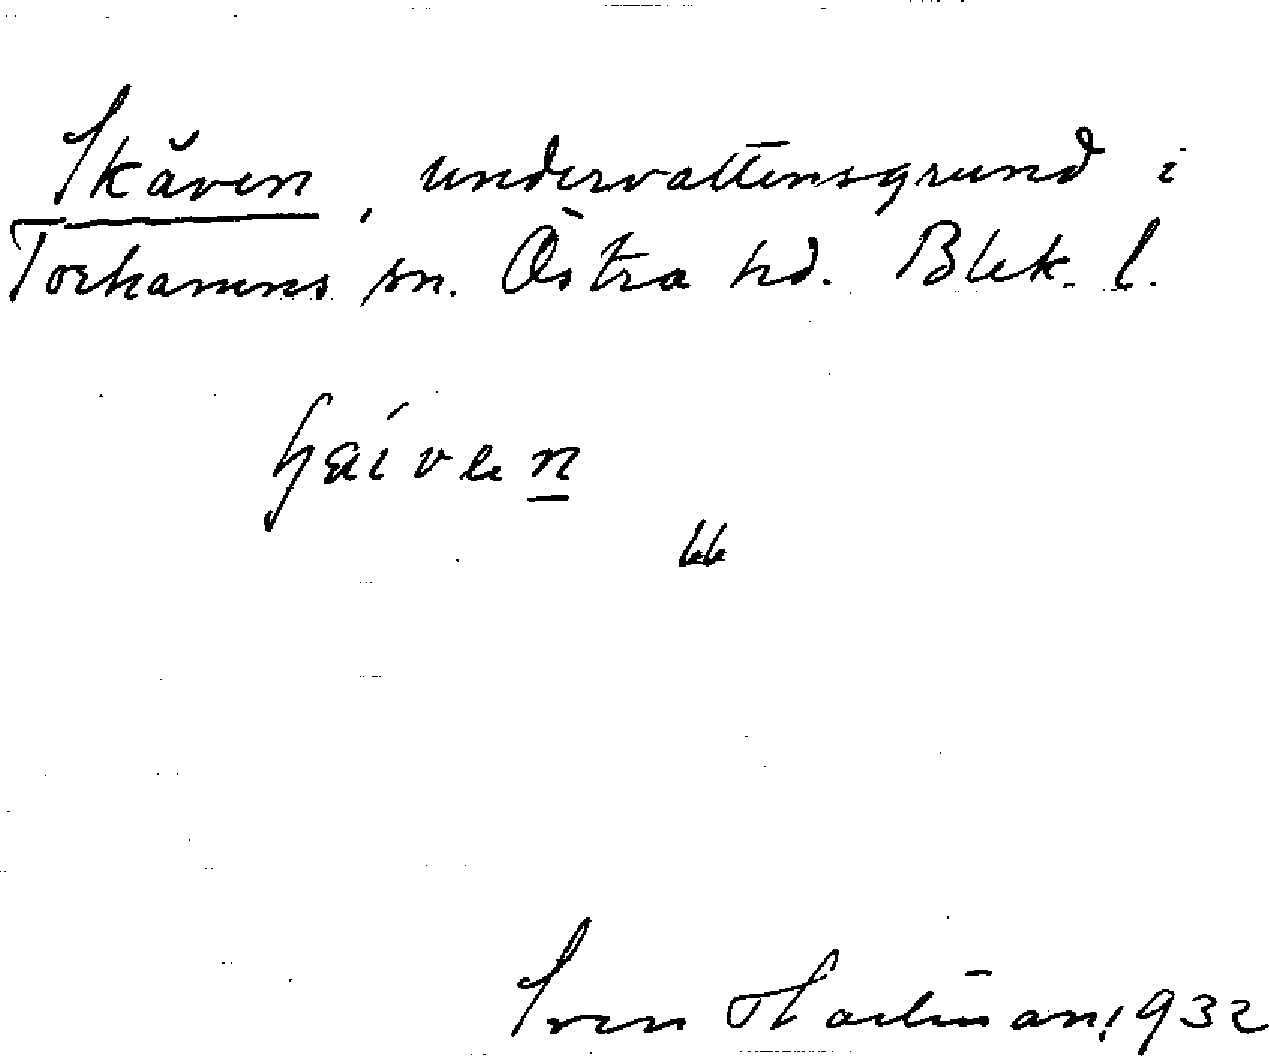 Skäven, undervattensgrund i
Torhamns sn. Östra hd. Blek. l.
Sven Hartman, 1932